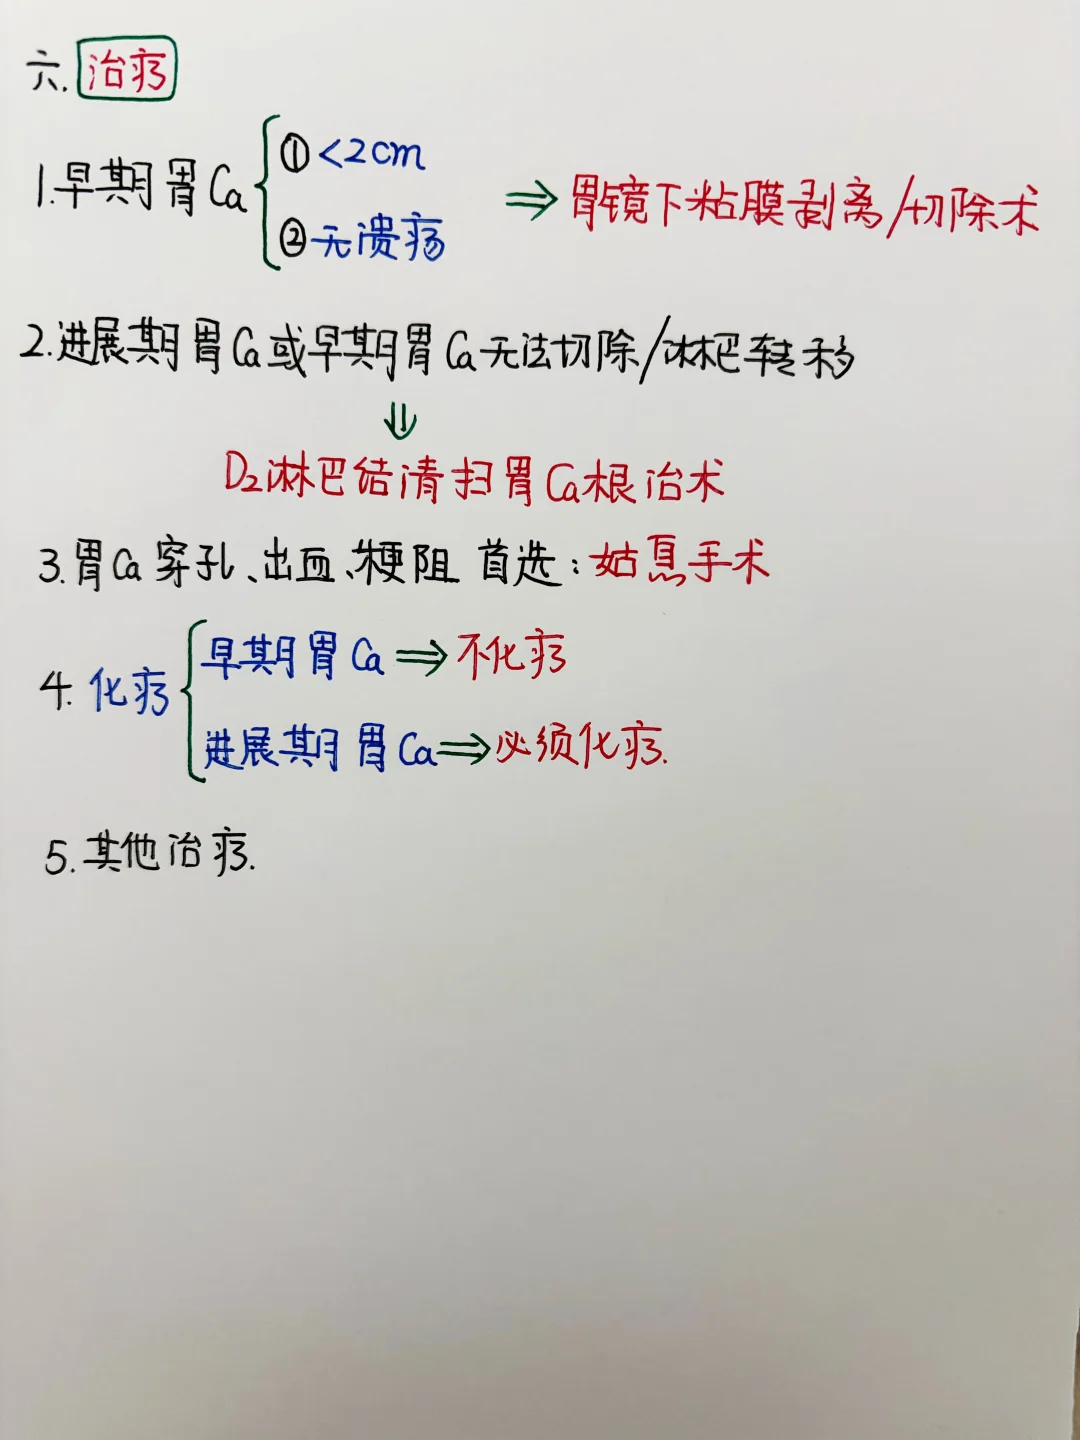 六.治疗
1.早期胃Ca
①<2cm
②无溃疡
⇒胃镜下粘膜剥离/切除术
2.进展期胃Ca或早期胃Ca无法切除/淋巴转移
⇓
D2淋巴结清扫胃Ca根治术
3.胃Ca穿孔、出血、梗阻 首选:姑息手术
4.化疗
早期胃Ca⇒不化疗
进展期胃Ca⇒必须化疗.
5.其他治疗.